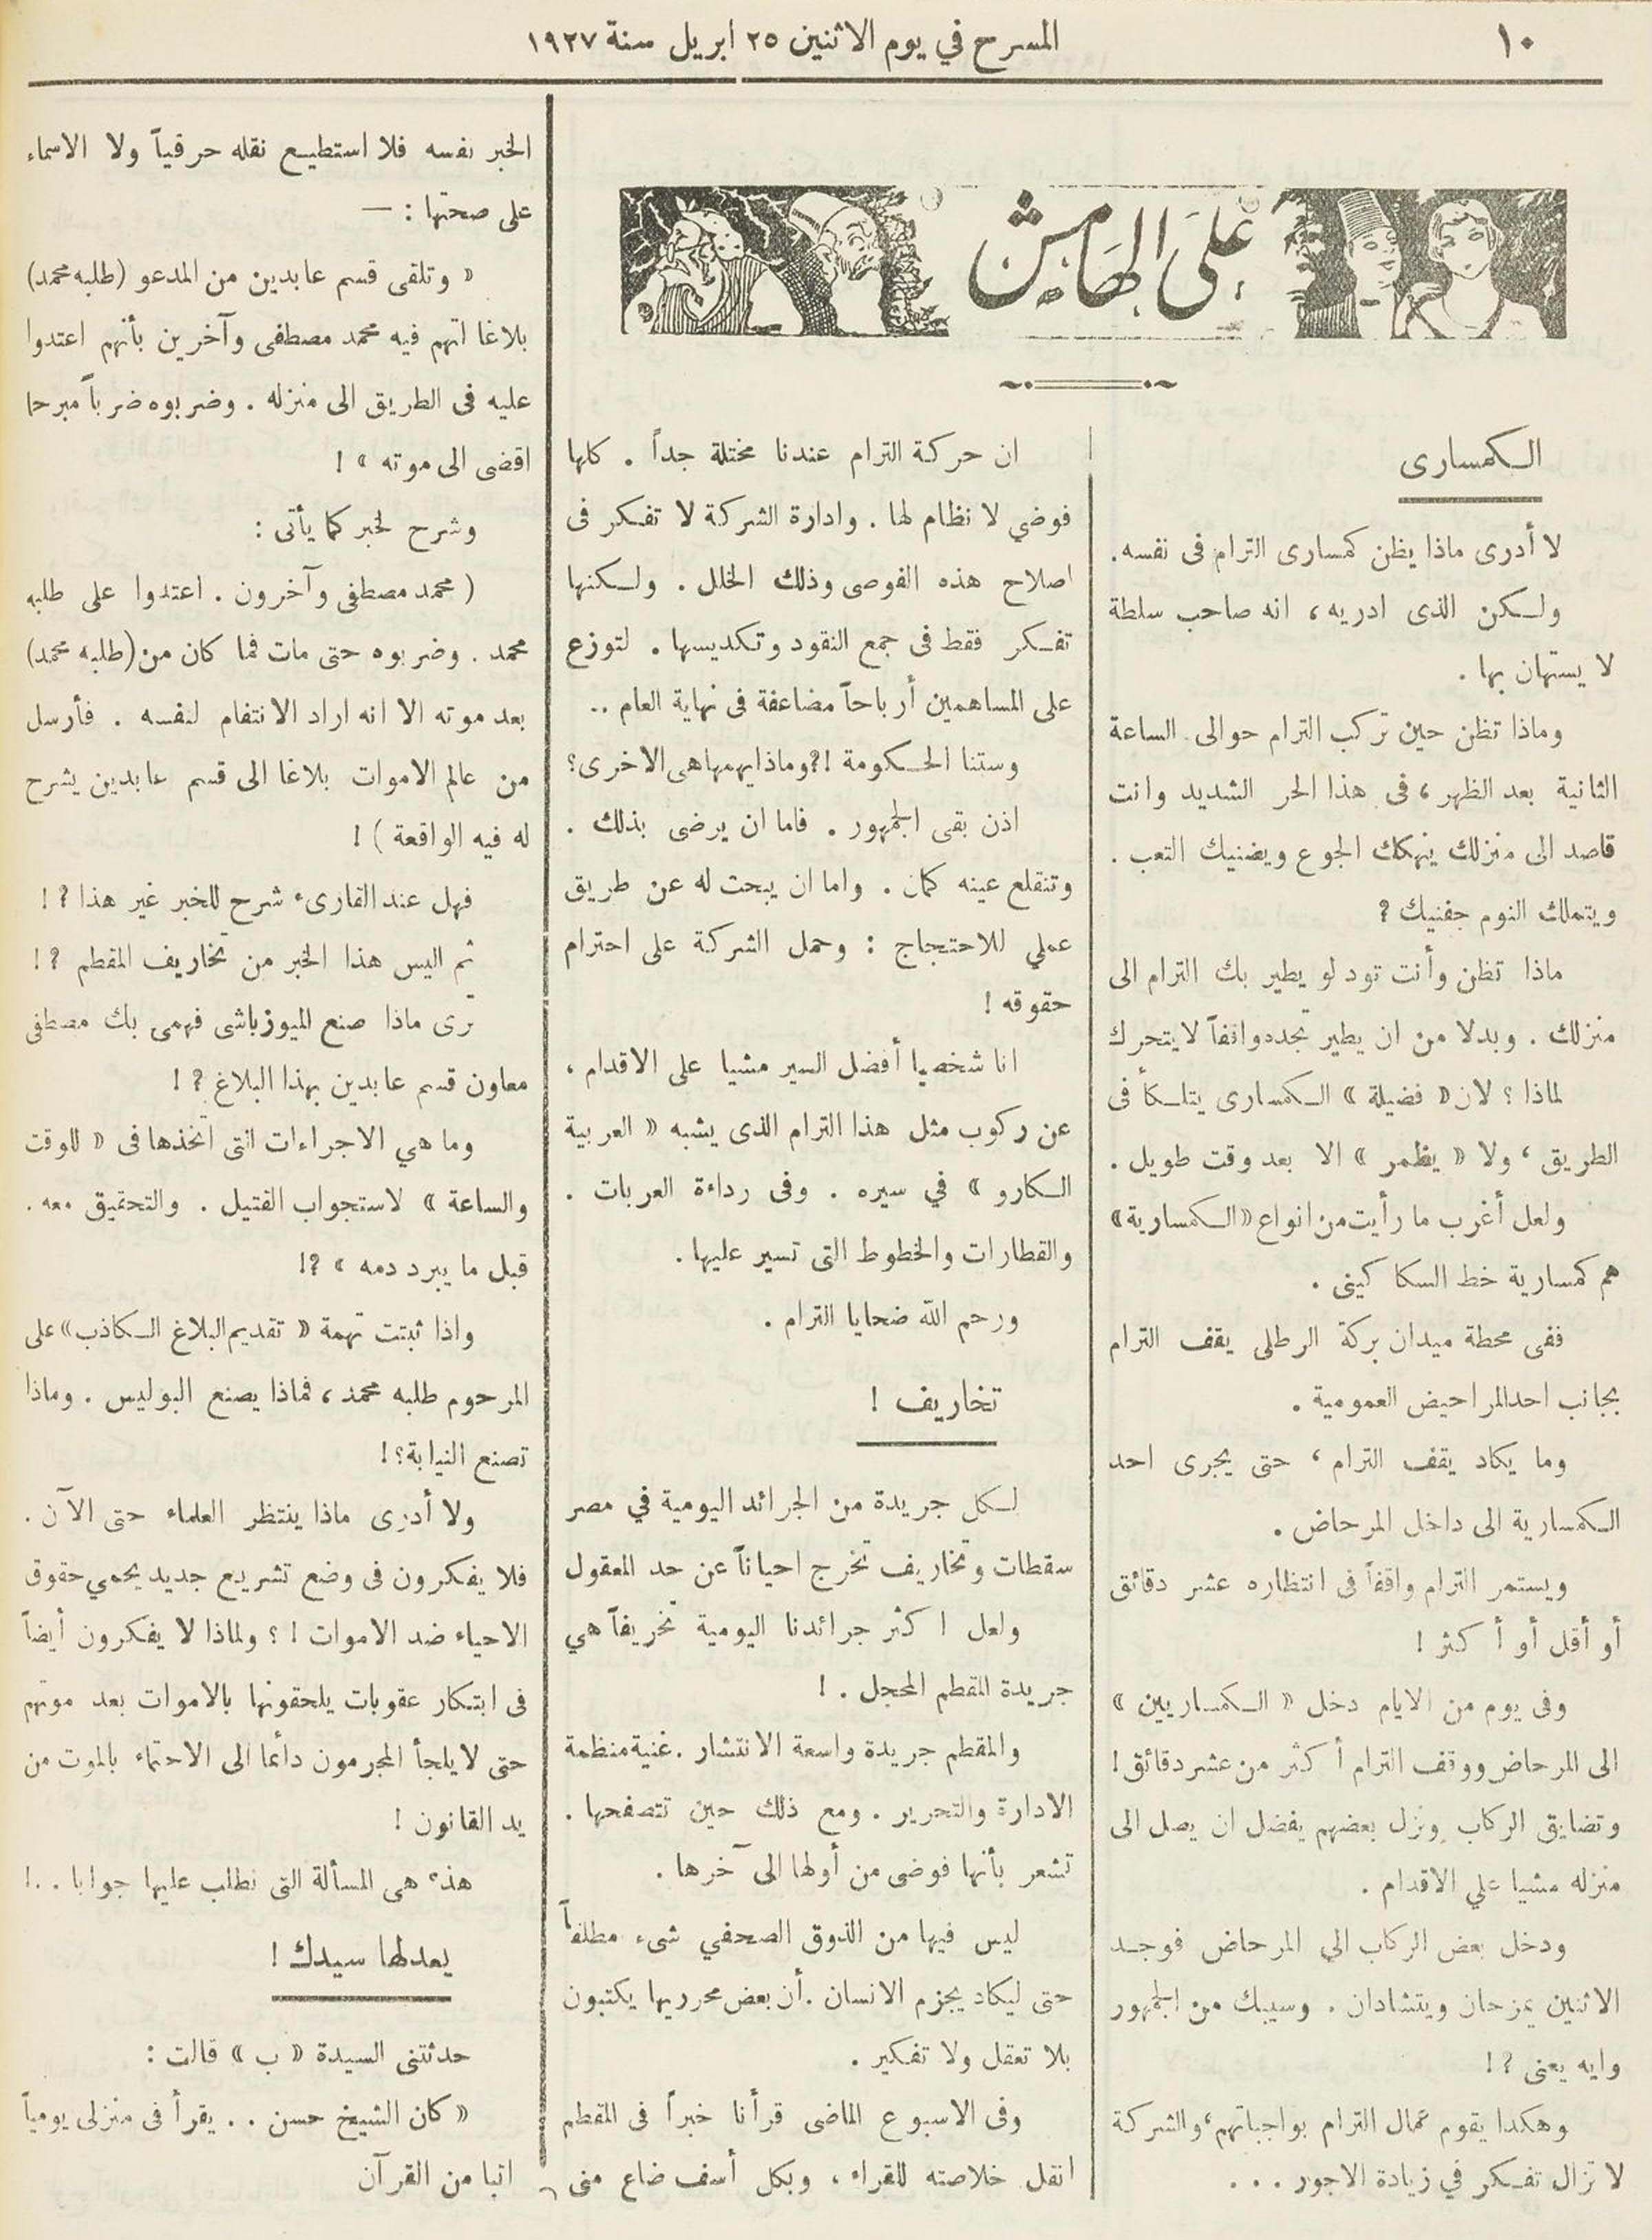 ١٠
المسرح في يوم الاثنين ٢٥ ابريل سنة ١٩٢٧
على الهامش
الكمسارى
لا أدرى ماذا يظن كمسارى الترام فى نفسه.
ولكن الذى ادريه، انه صاحب سلطة
لا يستهان بها .
وماذا تظن حين تركب الترام حوالى الساعة
الثانية بعد الظهر، فى هذا الحر الشديد وانت
قاصد الى منزلك ينهكك الجوع ويضنيك التعب .
ويتملك النوم جفنيك ?
ماذا تظن وأنت تود لو يطير بك الترام الى
منزلك . وبدلا من ان يطير تجده واقفاً لايتحرك
لماذا ؟ لان « فضيلة » الكمسارى يتلكأ فى
الطريق، ولا « يظهر » الا بعد وقت طويل .
ولعل أغرب ما رأيت من انواع «الكمسارية»
هم كمسارية خط السكا كينى .
ففى محطة ميدان بركة الرطلى يقف الترام
بجانب احد المراحيض العمومية .
وما يكاد يقف الترام، حتى يجرى احد
الكمسارية الى داخل المرحاض .
ويستمر الترام واقفاً فى انتظاره عشر دقائق
أو أقل أو أ كثر !
وفى يوم من الايام دخل « الكمساريين »
الى المرحاض ووقف الترام أ كثر من عشر دقائق !
وتضايق الركاب ونزل بعضهم يفضل ان يصل الى
منزله مشيا علي الاقدام .
ودخل بعض الركاب الي المرحاض فوجد
الاثنين يمزحان ويتشادان . وسيبك من الجمهور
وايه يعنى ?!
وهكدا يقوم عمال الترام بواجباتهم، والشركة
لا تزال تفكر في زيادة الاجور ...
ان حركة الترام عندنا مختلة جداً . كلها
فوضي لا نظام لها . وادارة الشركة لا تفكر فى
اصلاح هذه الفوصى وذلك الخلل . ولكنها
تفكر فقط فى جمع النقود وتكديسها . لتوزع
على المساهمين أرباحاً مضاعفة فى نهاية العام ..
وستنا الحكومة !?وماذا يهمها هى الاخرى؟
اذن بقى الجمهور . فاما ان يرضى بذلك .
وتنقلع عينه كمان . واما ان يبحث له عن طريق
عملي للاحتجاج : وحمل الشركة على احترام
حقوقه !
انا شخصيا أفضل السير مشيا على الاقدام ،
عن ركوب مثل هذا الترام الذى يشبه « العربية
الكارو » في سيره . وفى رداءة العربات .
والقطارات والخطوط التى تسير عليها .
ورحم الله ضحايا الترام .
تخاريف !
لكل جريدة من الجرائد اليومية في مصر
سقطات وتخاريف تخرج احياناً عن حد المعقول
ولعل ا كثر جرائدنا اليومية تخريفاً هي
جريدة المقطم المحجل . !
والمقطم جريدة واسعة الانتشار . غنية منظمة
الادارة والتحرير . ومع ذلك حين تتصفحها .
تشعر بأنها فوضى من أولها الى آخرها .
ليس فيها من الذوق الصحفي شىء مطلقاً
حتى ليكاد يجزم الانسان . أن بعض محرريها يكتبون
بلا تعقل ولا تفكير .
وفى الاسبوع الماضى قرأنا خبراً فى المقطم
انقل خلاصته للقراء ، وبكل أسف ضاع منى
الخبر نفسه فلا استطيع نقله حرفياً ولا الاسماء
على صحتها : —
« وتلقى قسم عابدين من المدعو (طلبه محمد)
بلاغا اتهم فيه محمد مصطفى وآخرين بأنهم اعتدوا
عليه فى الطريق الى منزله . وضربوه ضرباً مبرحا
افضى الى موته » !
وشرح لخبر كما يأتى :
( محمد مصطفى وآخرون . اعتدوا على طلبه
محمد . وضربوه حتى مات فما كان من (طلبه محمد)
بعد موته الا انه اراد الانتقام لنفسه . فأرسل
من عالم الاموات بلاغا الى قسم عابدين يشرح
له فيه الواقعة ) !
فهل عند القارىء شرح للخبر غير هذا ?!
ثم اليس هذا الخبر من تخاريف المقطم ?!
ترى ماذا صنع الميوزباشى فهمى بك مصطفى
معاون قسم عابدين بهذا البلاغ ?!
وما هي الاجراءات التى اتخذها فى « للوقت
والساعة » لاستجواب القتيل . والتحقيق معه .
قبل ما يبرد دمه » ?!
واذا ثبتت تهمة « تقديم البلاغ الكاذب» على
المرحوم طلبه محمد ، فماذا يصنع البوليس . وماذا
تصنع النيابة؟!
ولا أدرى ماذا ينتظر العلماء حتى الآن .
فلا يفكرون فى وضع تشريع جديد يحمي حقوق
الاحياء ضد الاموات ! ؟ ولماذا لا يفكرون أيضاً
فى ابتكار عقوبات يلحقونها بالاموات بعد موتهم
حتى لا يلجأ المجرمون دائما الى الاحتماء بالموت من
يد القانون !
هذه هى المسألة التى نطلب عليها جوابا . .!
يعدلها سيدك !
حدثتنى السيدة « ب » قالت :
« كان الشيخ حسن . . يقرأ فى منزلى يومياً
اتيا من القرآن